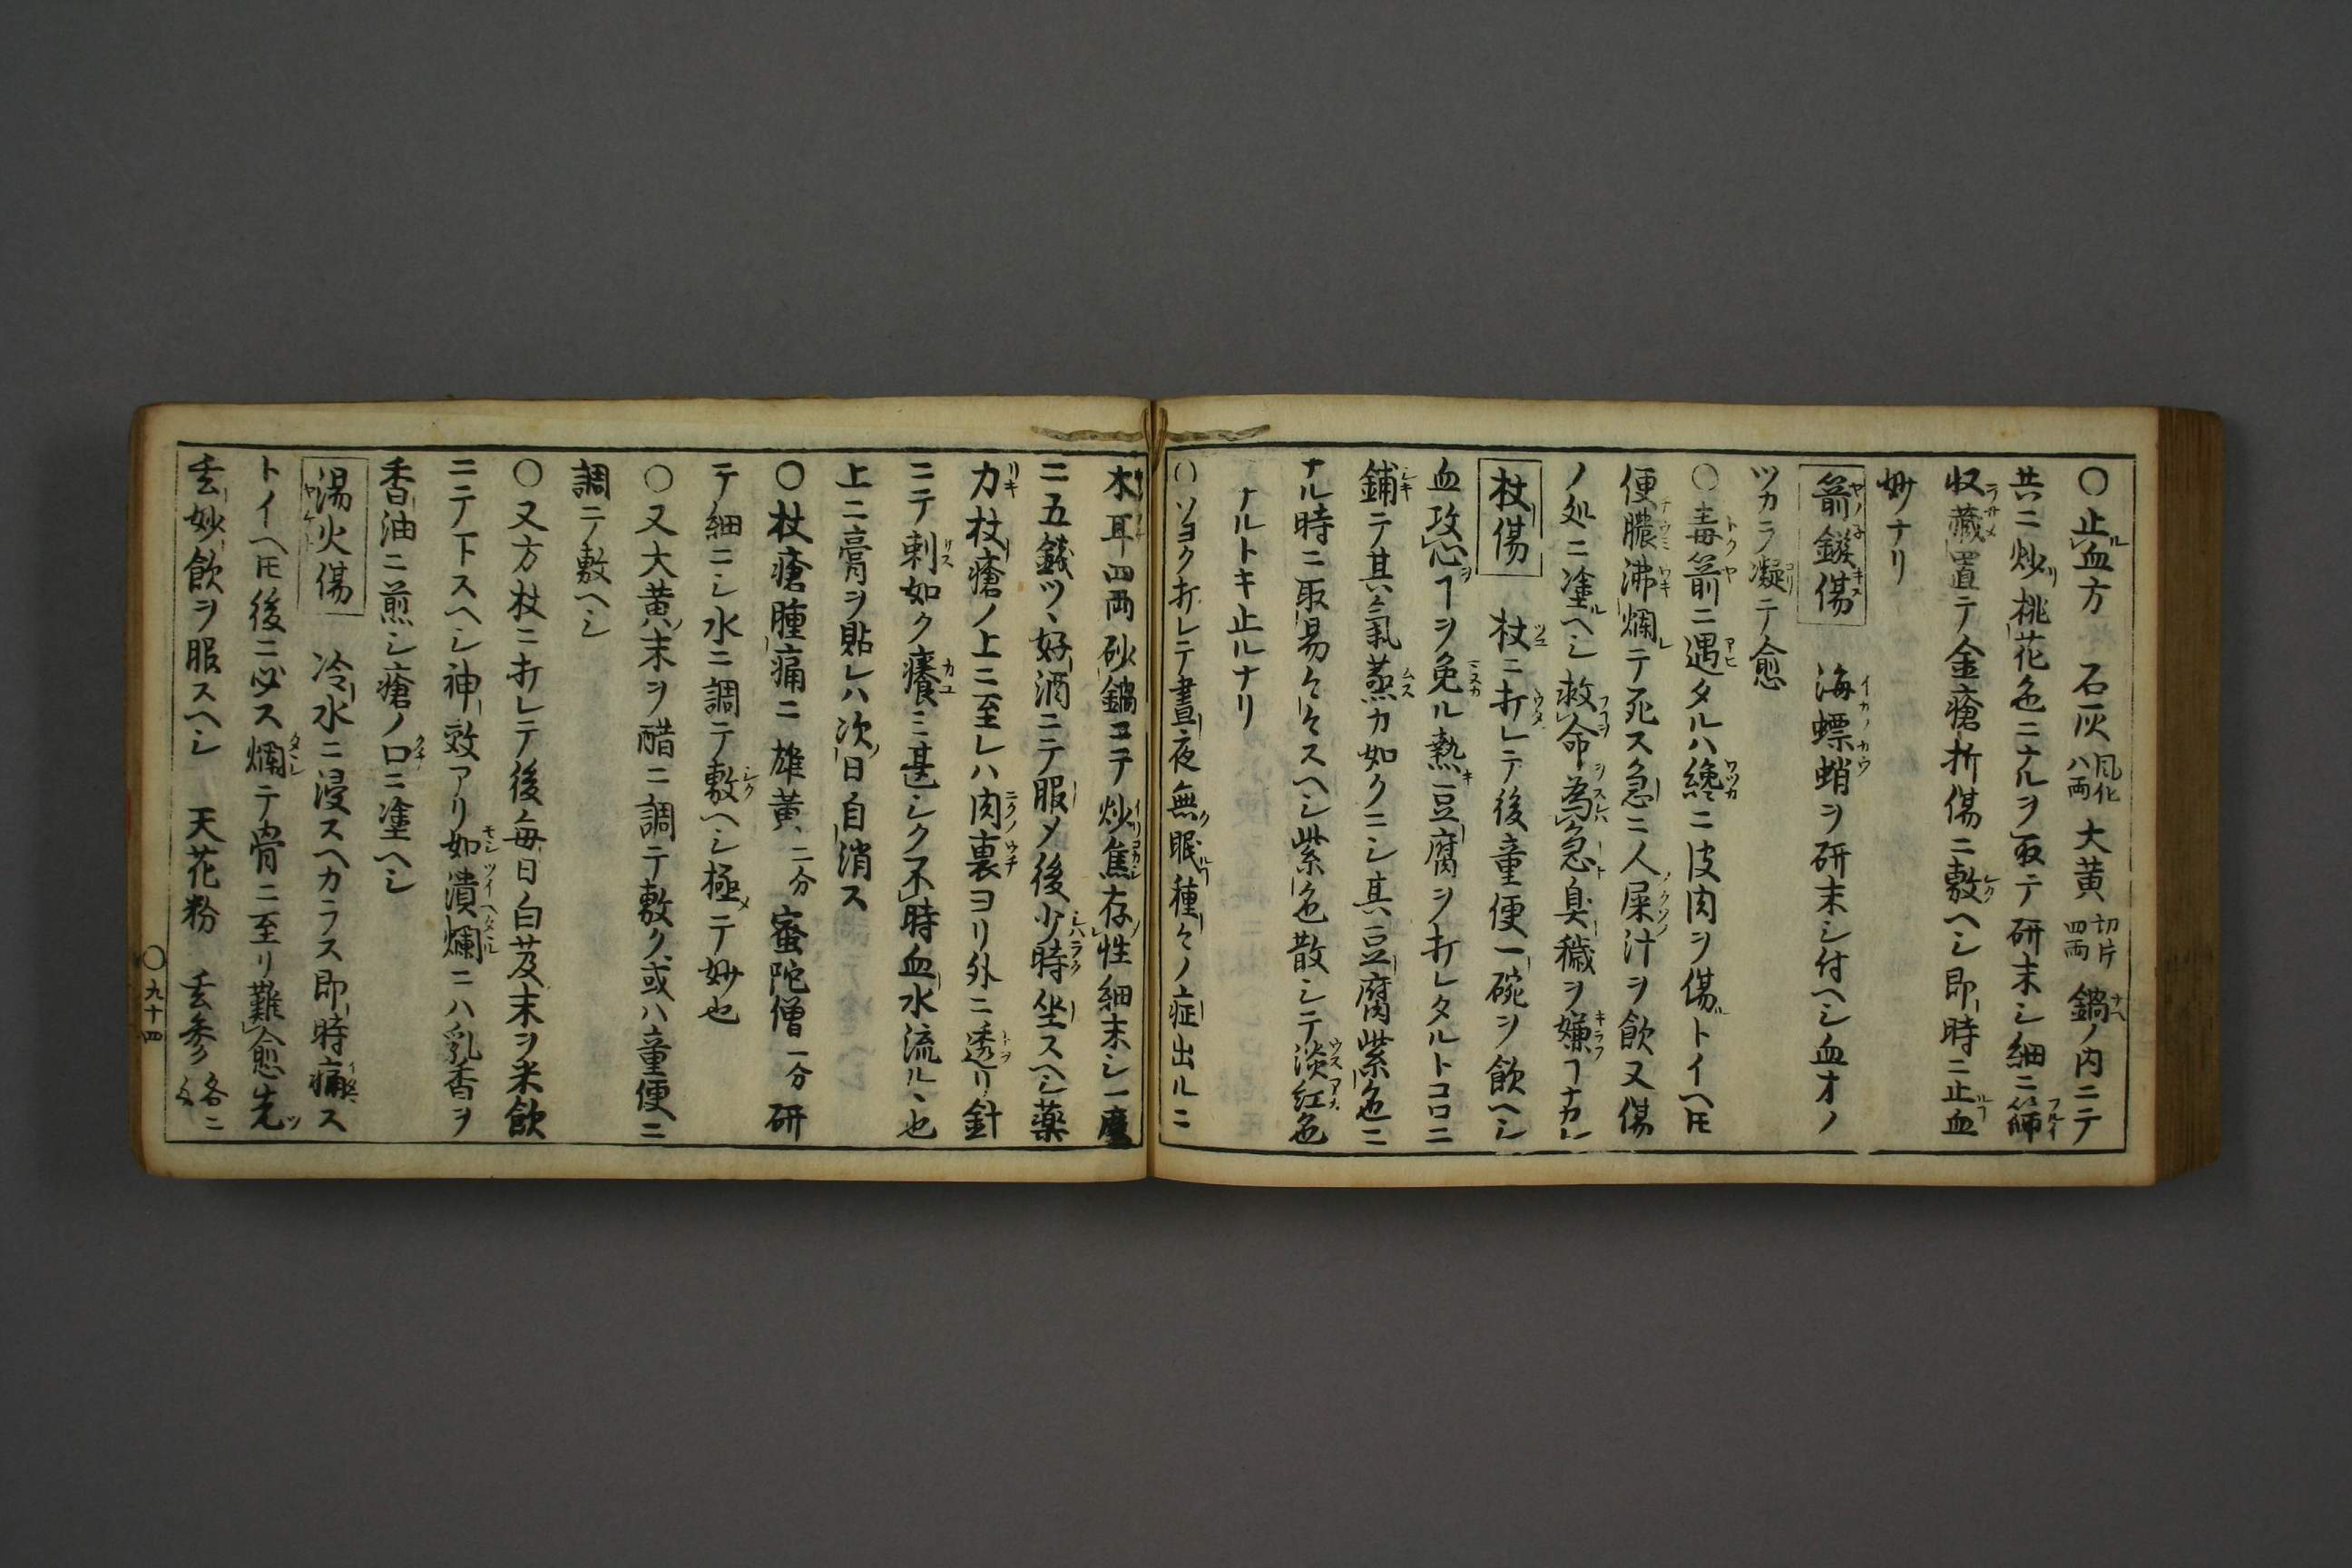 〇止血方　石灰 風化八両 大黄 切片四両 鍋ノ内ニテ
共ニ炒桃花色ニナルヲ取テ研末シ細ニ篩
収藏置テ金瘡折傷ニ敷ヘシ即時ニ止血
妙ナリ
箭鏃傷　海螵蛸ヲ研末シ付ヘシ血オノ
ツカラ凝テ愈
〇毒箭ニ遇タルハ纔ニ皮肉ヲ傷トイヘ𪜈
便膿沸爛テ死ス急ニ人屎汁ヲ飲又傷
ノ処ニ塗ヘシ救命為急臭穢ヲ嫌ヿナカレ
杖傷　杖ニ打レテ後童便一碗ヲ飲ヘシ
血攻心ヿヲ免ル熱豆腐ヲ打レタルトコロニ
鋪テ其氣蒸カ如クニシ其豆腐紫色ニ
ナル時ニ取易々々スヘシ紫色散シテ淡紅色
ナルトキ止ルナリ
〇ソヨク打レテ晝夜無眠種々ノ症出ルニ
木耳四両砂鍋ニテ炒焦存性細末シ一度
ニ五錢ツヽ好酒ニテ服メ後少時坐スヘシ薬
力杖瘡ノ上ニ至レハ肉裏ヨリ外ニ透リ針
ニテ刺如ク癢ミ甚シク不時血水流ルヽ也
上ニ膏ヲ貼レハ次日自消ス
〇杖瘡腫痛ニ雄黄 二分 蜜陀僧 一分 研
テ細ニシ水ニ調テ敷ヘシ極テ妙也
〇又大黄末ヲ醋ニ調テ敷ク或ハ童便ニ
調テ敷ヘシ
〇又方杖ニ打レテ後毎日白芨末ヲ米飲
ニテ下スヘシ神效アリ如潰爛ニハ乳香ヲ
香油ニ煎シ瘡ノ口ニ塗ヘシ
湯火傷　冷水ニ浸スヘカラス即時痛ス
トイヘ𪜈後ニ必ス爛テ骨ニ至リ難愈先
玄妙飲ヲ服スヘシ　天花粉　玄参 各二
〇九十四